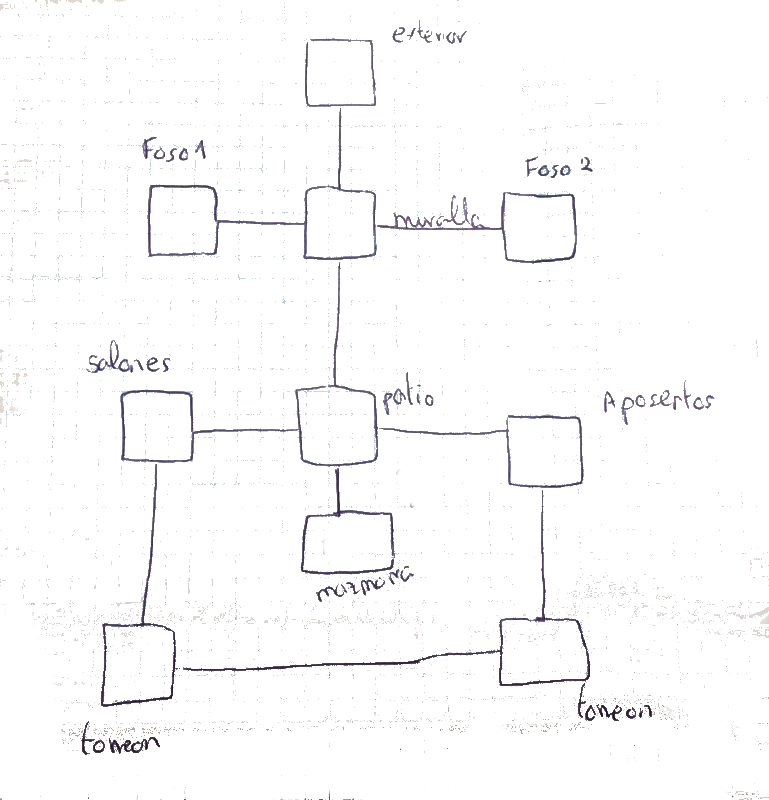 exterior
Foso 1
Foso 2
muralla
salones
patio
Aposentos
mazmorra
torreon
torreon